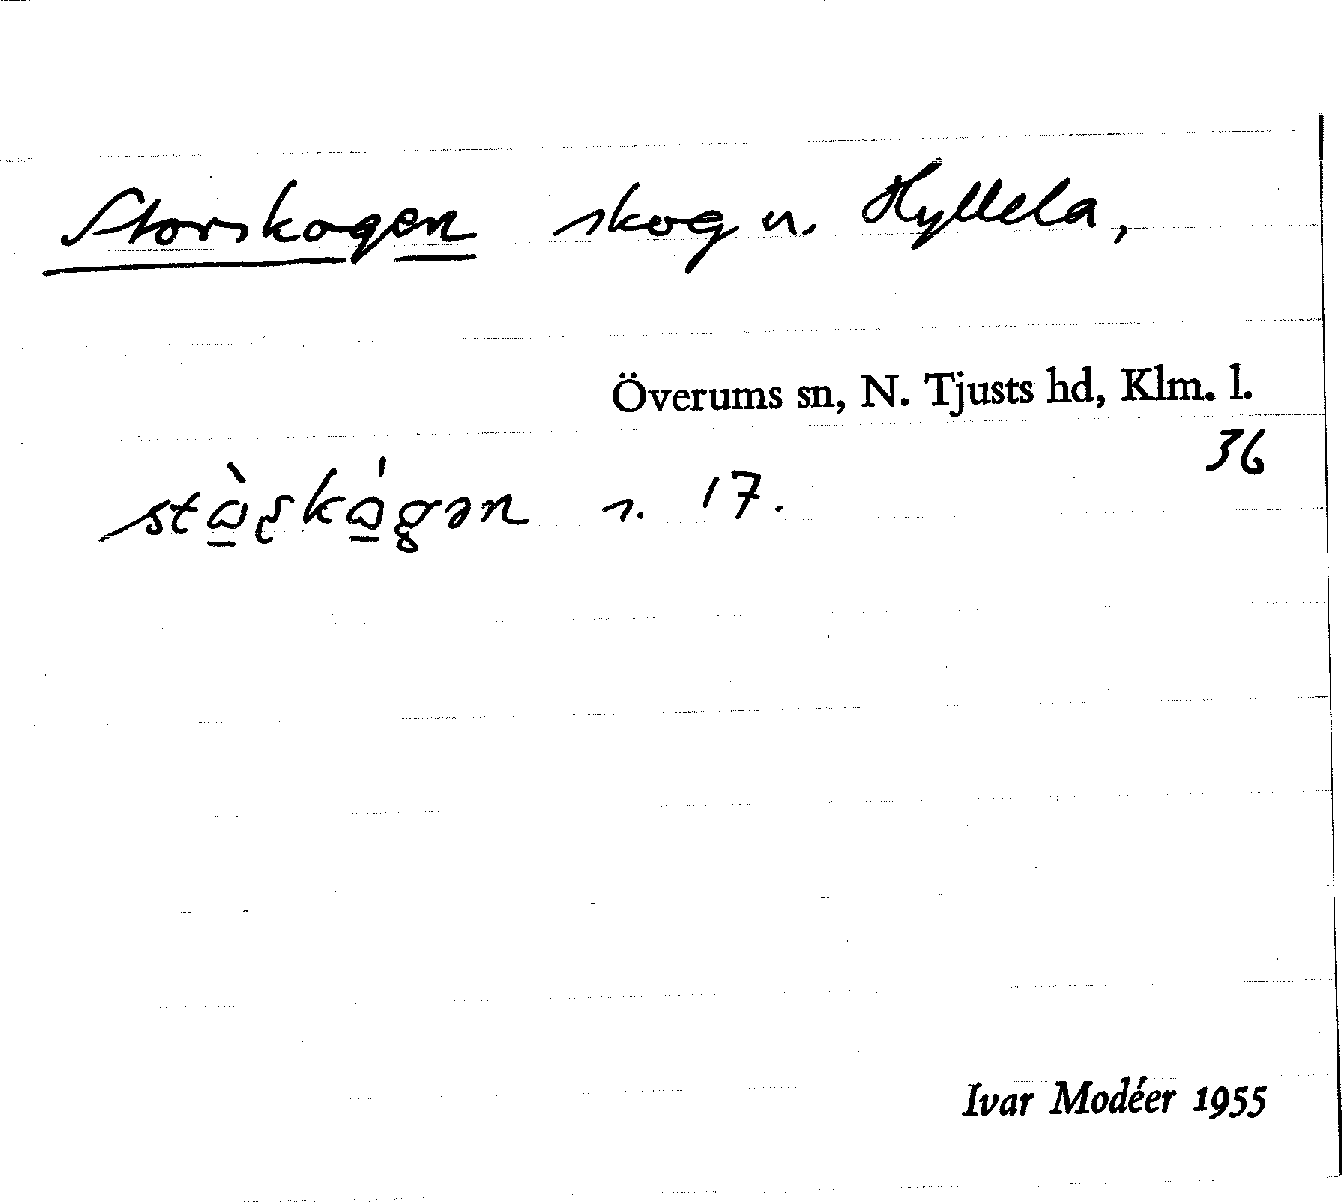 Storskogen skog u. Hyllela,
Överums sn, N. Tjusts hd, Klm. l.
36
s. 17.
Ivar Modéer 1955